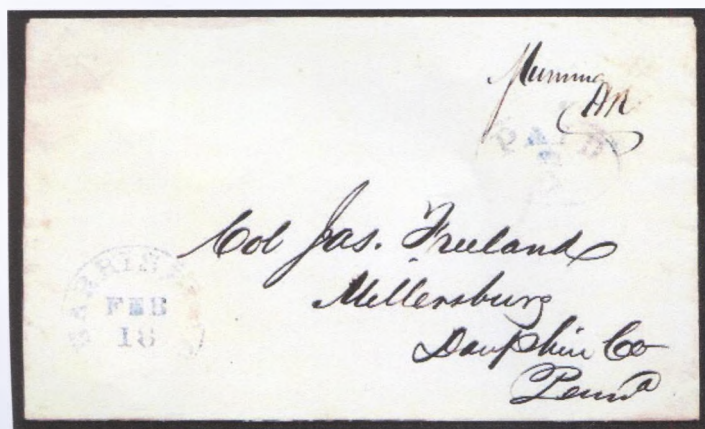 Mumma
PAID
Col Jas. Freeland
Millersburg
Dauphin Co
Penna
FEB
18